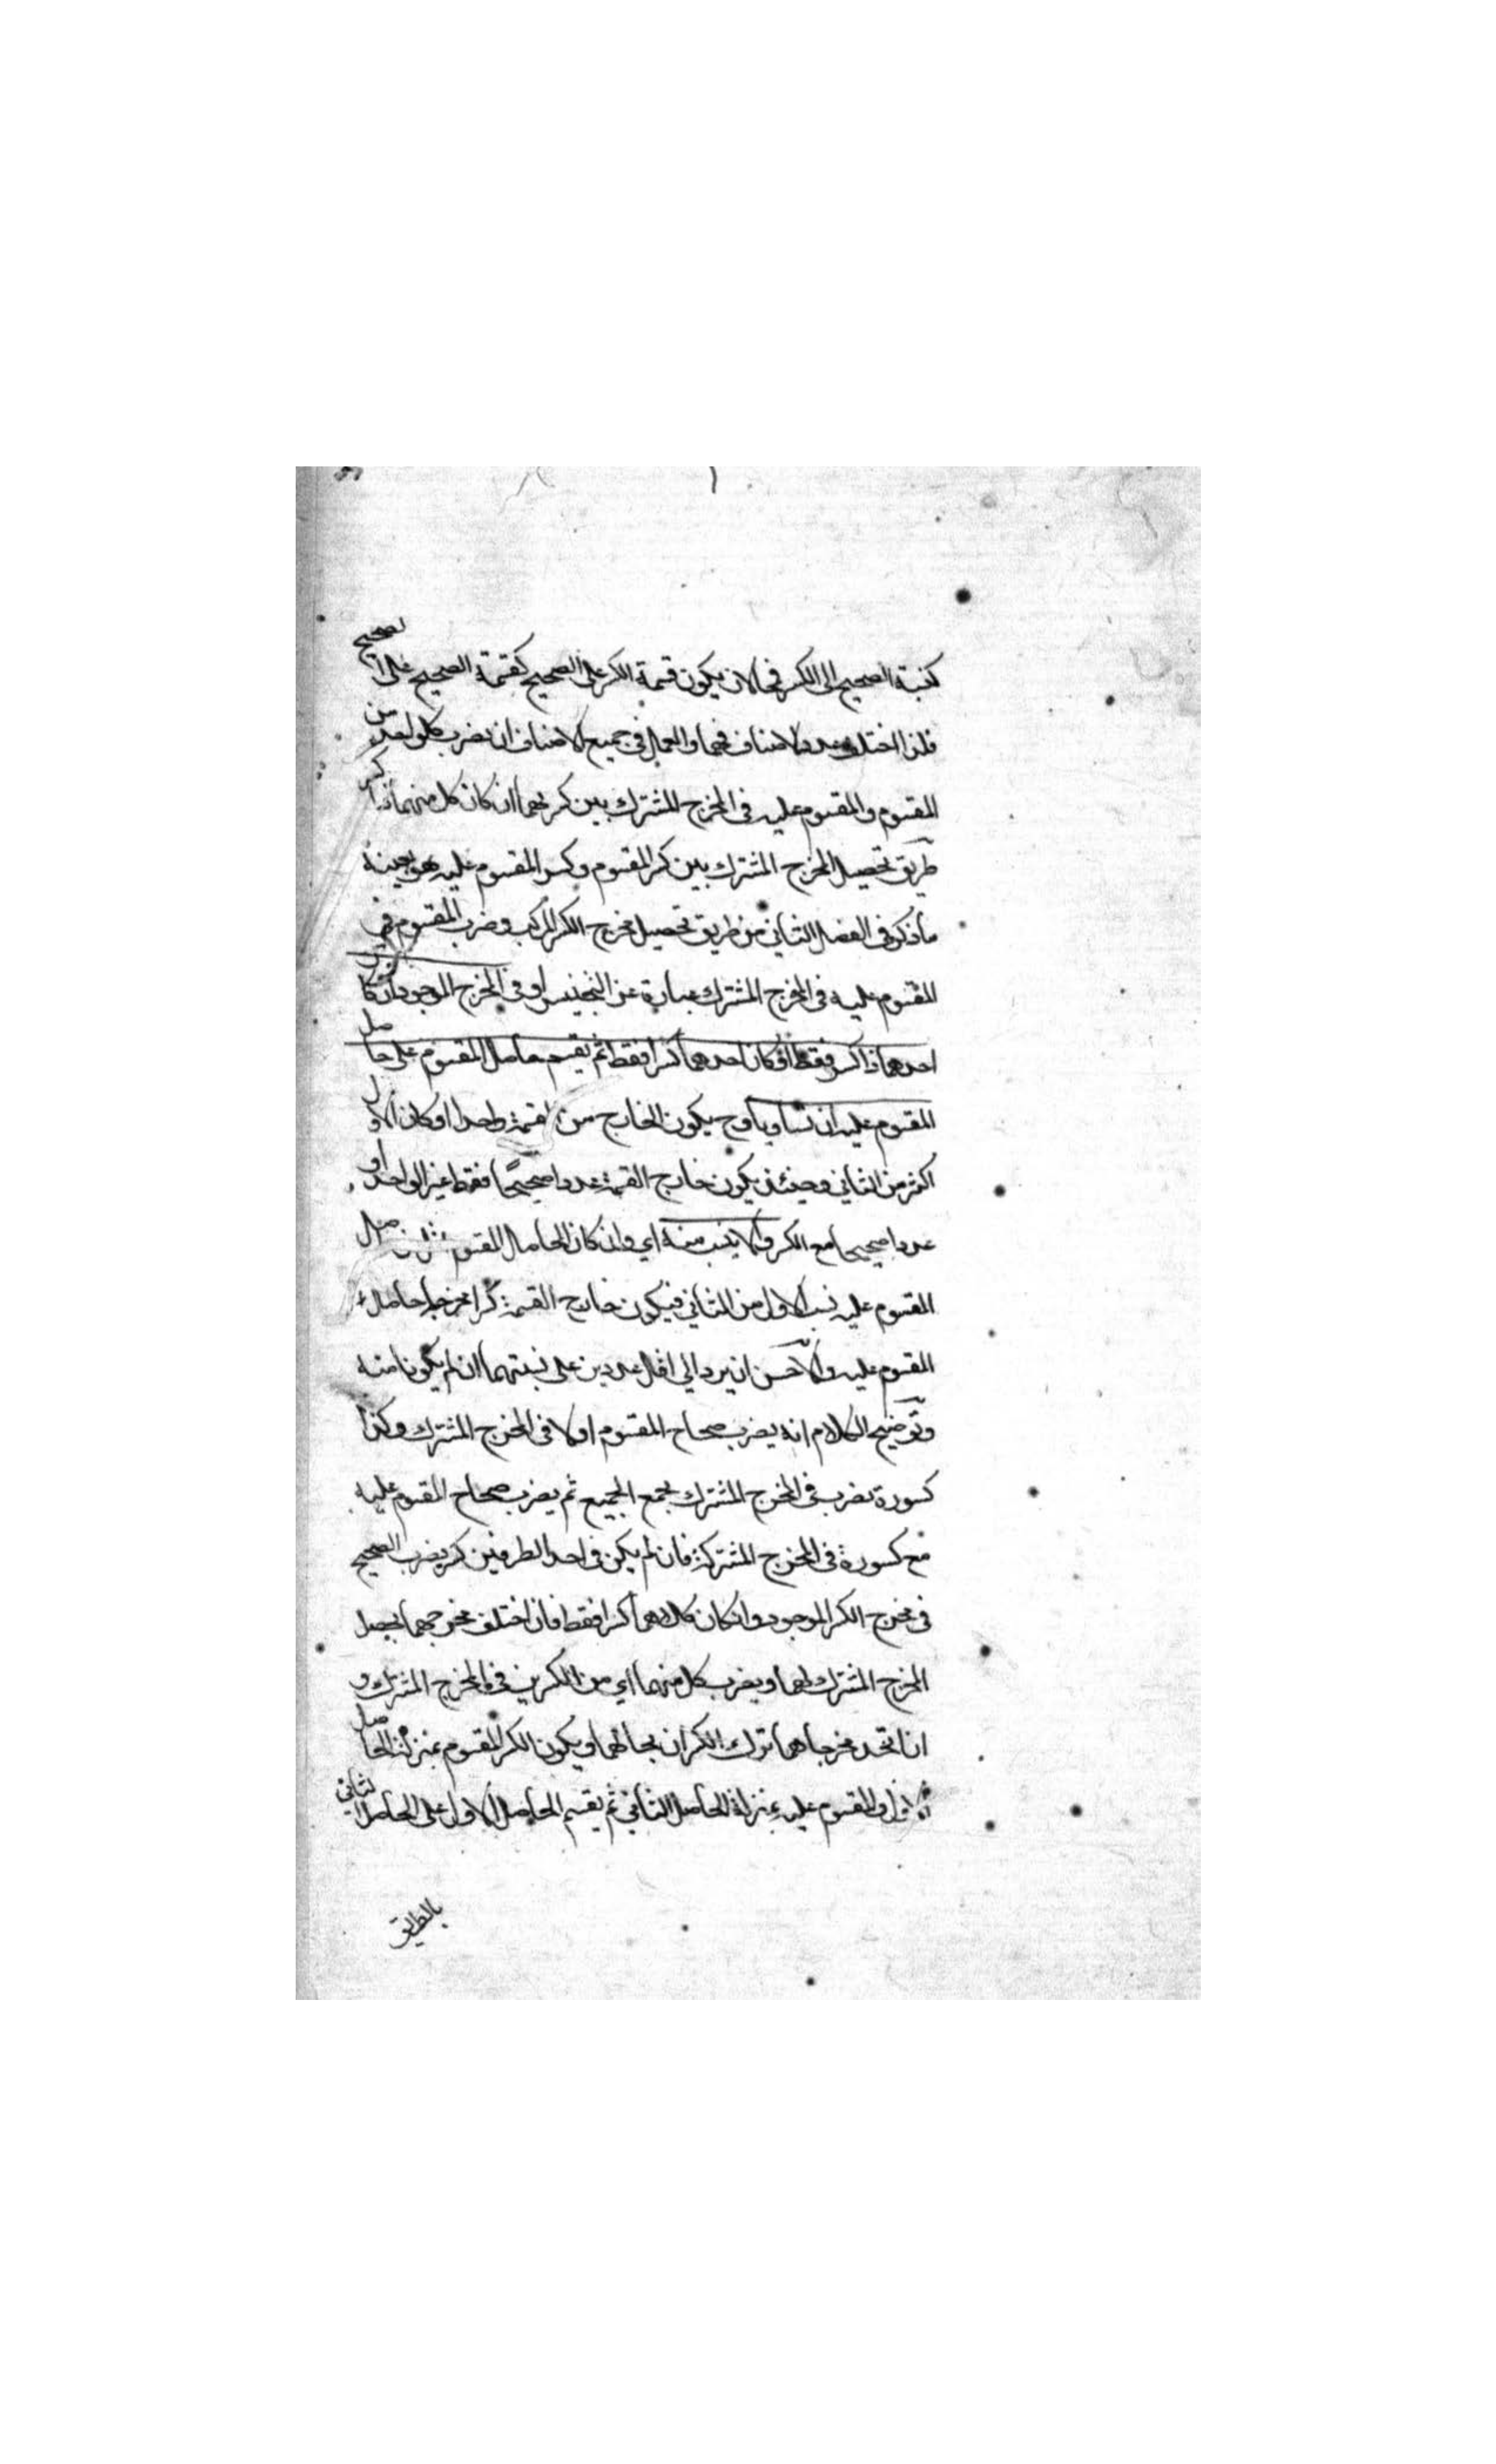 كنسبة الصحيح الى الكسر فحالان يكون قسمة الكسر على الصحيح كقسمة الصحيح على الصحيح
فلذا اختلف عدد الاصناف فيهما والعمل فى جميع الاصناف ان يضرب كل واحد من
المقسوم والمقسوم عليه فى المخرج المشترك بين كسريهما ان كان كل منهما ذا كسر
طريق تحصيل المخرج المشترك بين كسر المقسوم وكسر المقسوم عليه هو بعينه
ما ذكر فى الفصل الثاني من طريق تحصيل مخرج الكسر المركب وضرب المقسوم فى
المقسوم عليه فى المخرج المشترك عبارة عن التجنيس او فى المخرج الموجود ان كان
احدهما ذا كسر فقط او كان احدهما كسرا فقط ثم يقسم حاصل المقسوم على حاصل
المقسوم عليه ان تساويا وح يكون الخارج من القسمة واحدا او كان الاول
اكثر من الثاني وحينئذ يكون خارج القسمة عددا صحيحا فقط غير الواحد او
عددا صحيحا مع الكسر والا ينسب منه اي وان كان الحاصل المقسوم حاصل
المقسوم عليه نسب الاول من الثاني فيكون خارج القسمة كسرا مخرجه حاصل
المقسوم عليه والاحسن ان يرد الي اقل عددين على نسبتهما ان لم يكونا منه
وتوضيح الكلام انه يضرب صحاح المقسوم اولا فى المخرج المشترك وكذا
كسوره تضرب فى المخرج المشترك يجمع الجميع ثم يضرب صحاح المقسوم عليه
مع كسوره فى المخرج المشترك فان لم يكن فى احد الطرفين كسر يضرب الصحيح
فى مخرج الكسر الموجود وان كان كلاهما كسرا فقط فان اختلف مخرجهما يحصل
المخرج المشترك لهما ويضرب كل منهما اي من الكسرين فى المخرج المشترك و
ان اتحد مخرجاهما ترك الكسران بحالهما ويكون الكسر المقسوم بمنزلة الحاصل
الاول والمقسوم عليه بمنزلة الحاصل الثاني ثم يقسم الحاصل الاول على الحاصل الثاني
بالطريق